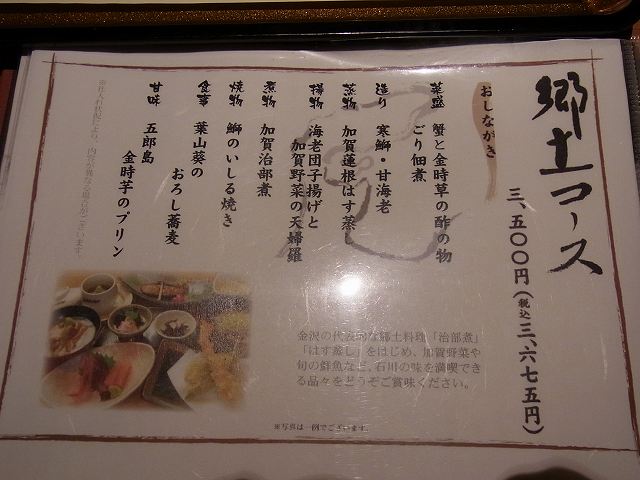 郷土コース
三、五〇〇円(税込三、六七五円)
おしながき
菜盛 蟹と金時草の酢の物
ごり佃煮
造り 寒鰤・甘海老
蒸物 加賀蓮根はす蒸し
揚物 海老団子揚げと
加賀野菜の天婦羅
煮物 加賀治部煮
焼物 鰤のいしる焼き
食事 葉山葵の
おろし蕎麦
甘味 五郎島
金時芋のプリン
※仕入れ状況により、内容が異なる場合がございます。
金沢の代表的な郷土料理「治部煮」
「はす蒸し」をはじめ、加賀野菜や
旬の鮮魚など、石川の味を満喫でき
る品々をどうぞご賞味ください。
※写真は一例でございます。